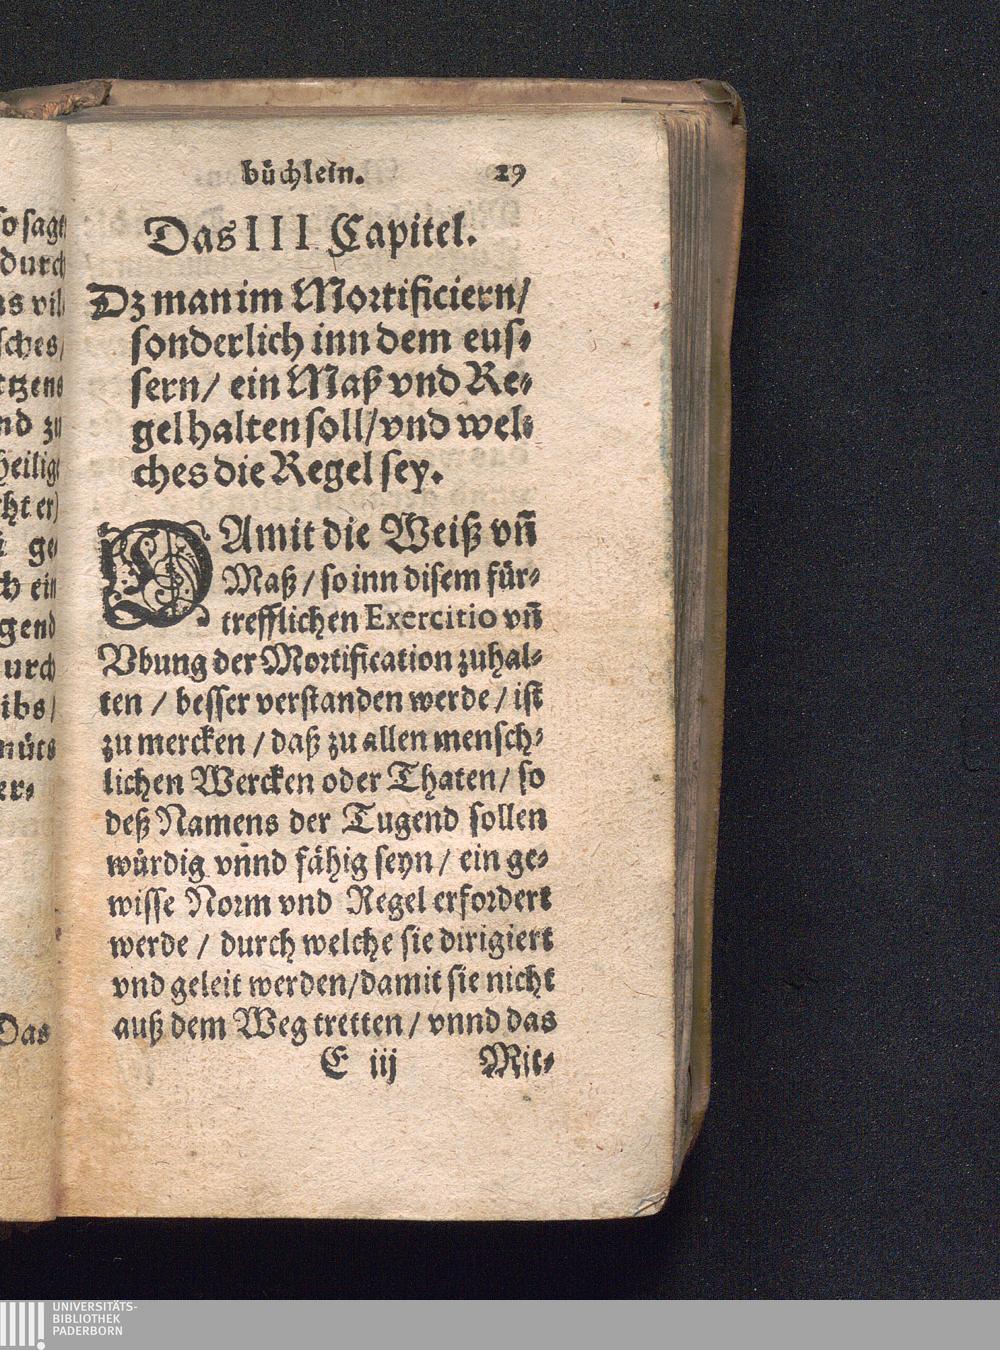 büchlein. 29
Das III Capitel.
Dz man im Mortificiern/
sonderlich inn dem eus⸗
sern/ ein Maß vnd Re⸗
gel halten soll/ vnd wel⸗
ches die Regel sey.
DAmit die Weiß vñ
Maß / so inn disem für⸗
trefflichen Exercitio vñ
Vbung der Mortification zuhal⸗
ten / besser verstanden werde / ist
zu mercken / daß zu allen mensch⸗
lichen Wercken oder Thaten / so
deß Namens der Tugend sollen
würdig vnnd fähig seyn / ein ge⸗
wisse Norm vnd Regel erfordert
werde / durch welche sie dirigiert
vnd geleit werden/ damit sie nicht
auß dem Weg tretten / vnnd das
E iij Mit⸗
so sagt
durch
sches/
nd zu
ht er)
ge⸗
h ein
gend
urch
ibs/
er⸗
Das
UNIVERSITÄTS-
BIBLIOTHEK
PADERBORN